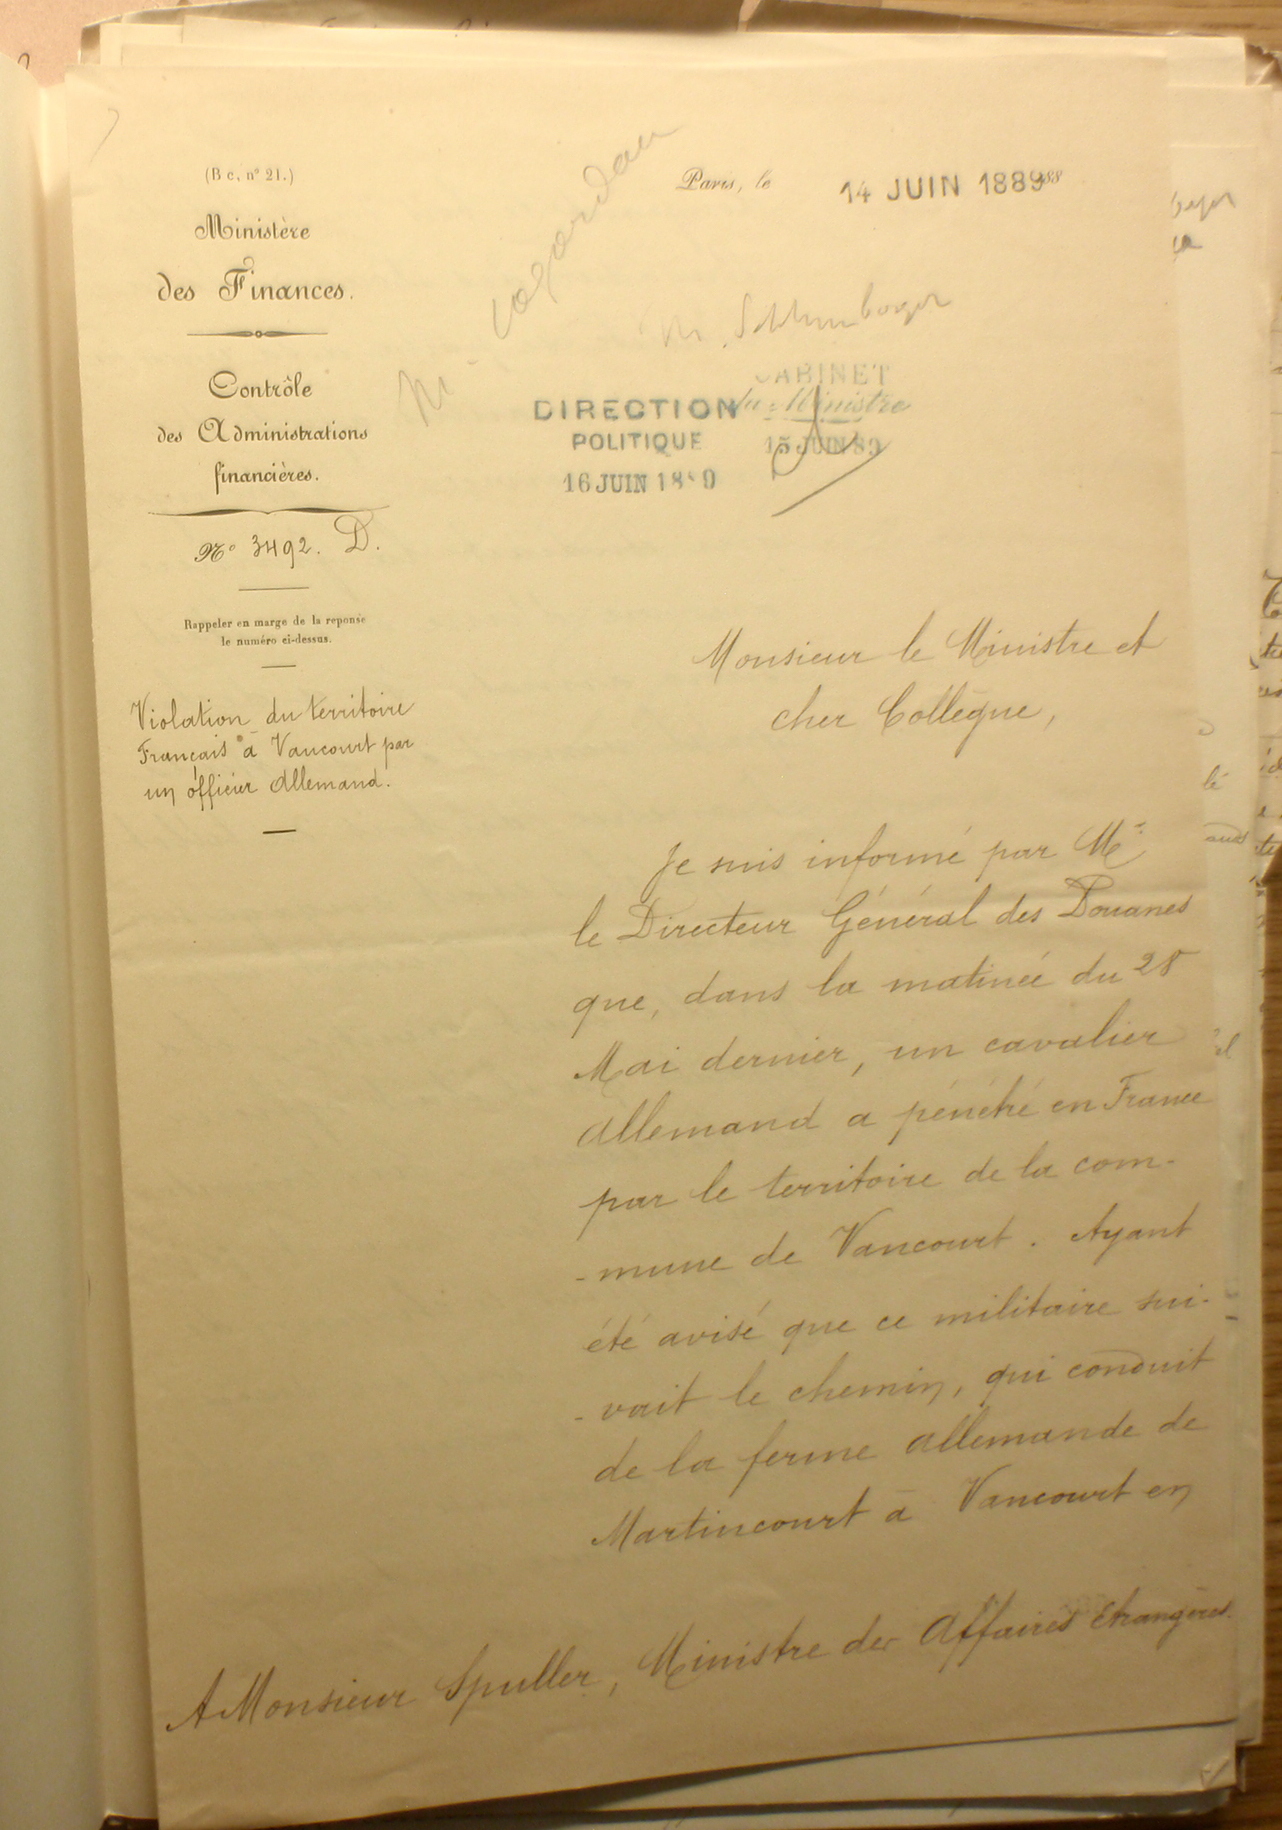 (B c, nº 21.)
Ministère
des Finances.
Contrôle
des Administrations
financières.
Nº 3492. D.
Rappeler en marge de la reponse
le numéro ci-dessus.
Violation du territoire
Français à Vancourt par
un officier Allemand.
Paris, le 14 JUIN 1889 188
M. Schlumberger
CABINET
du Ministre
15 JUIN 89
DIRECTION
POLITIQUE
16 JUIN 1889
Monsieur le Ministre et
cher Collègue,
Je suis informé par Mr
le Directeur Général des Douanes
que, dans la matinée du 28
Mai dernier, un cavalier
Allemand a pénétré en France
par le territoire de la com-
-mune de Vancourt. Ayant
été avisé que ce militaire sui-
-vait le chemin, qui conduit
de la ferme allemande de
Martincourt à Vancourt en
A Monsieur Spuller, Ministre des Affaires étrangères.